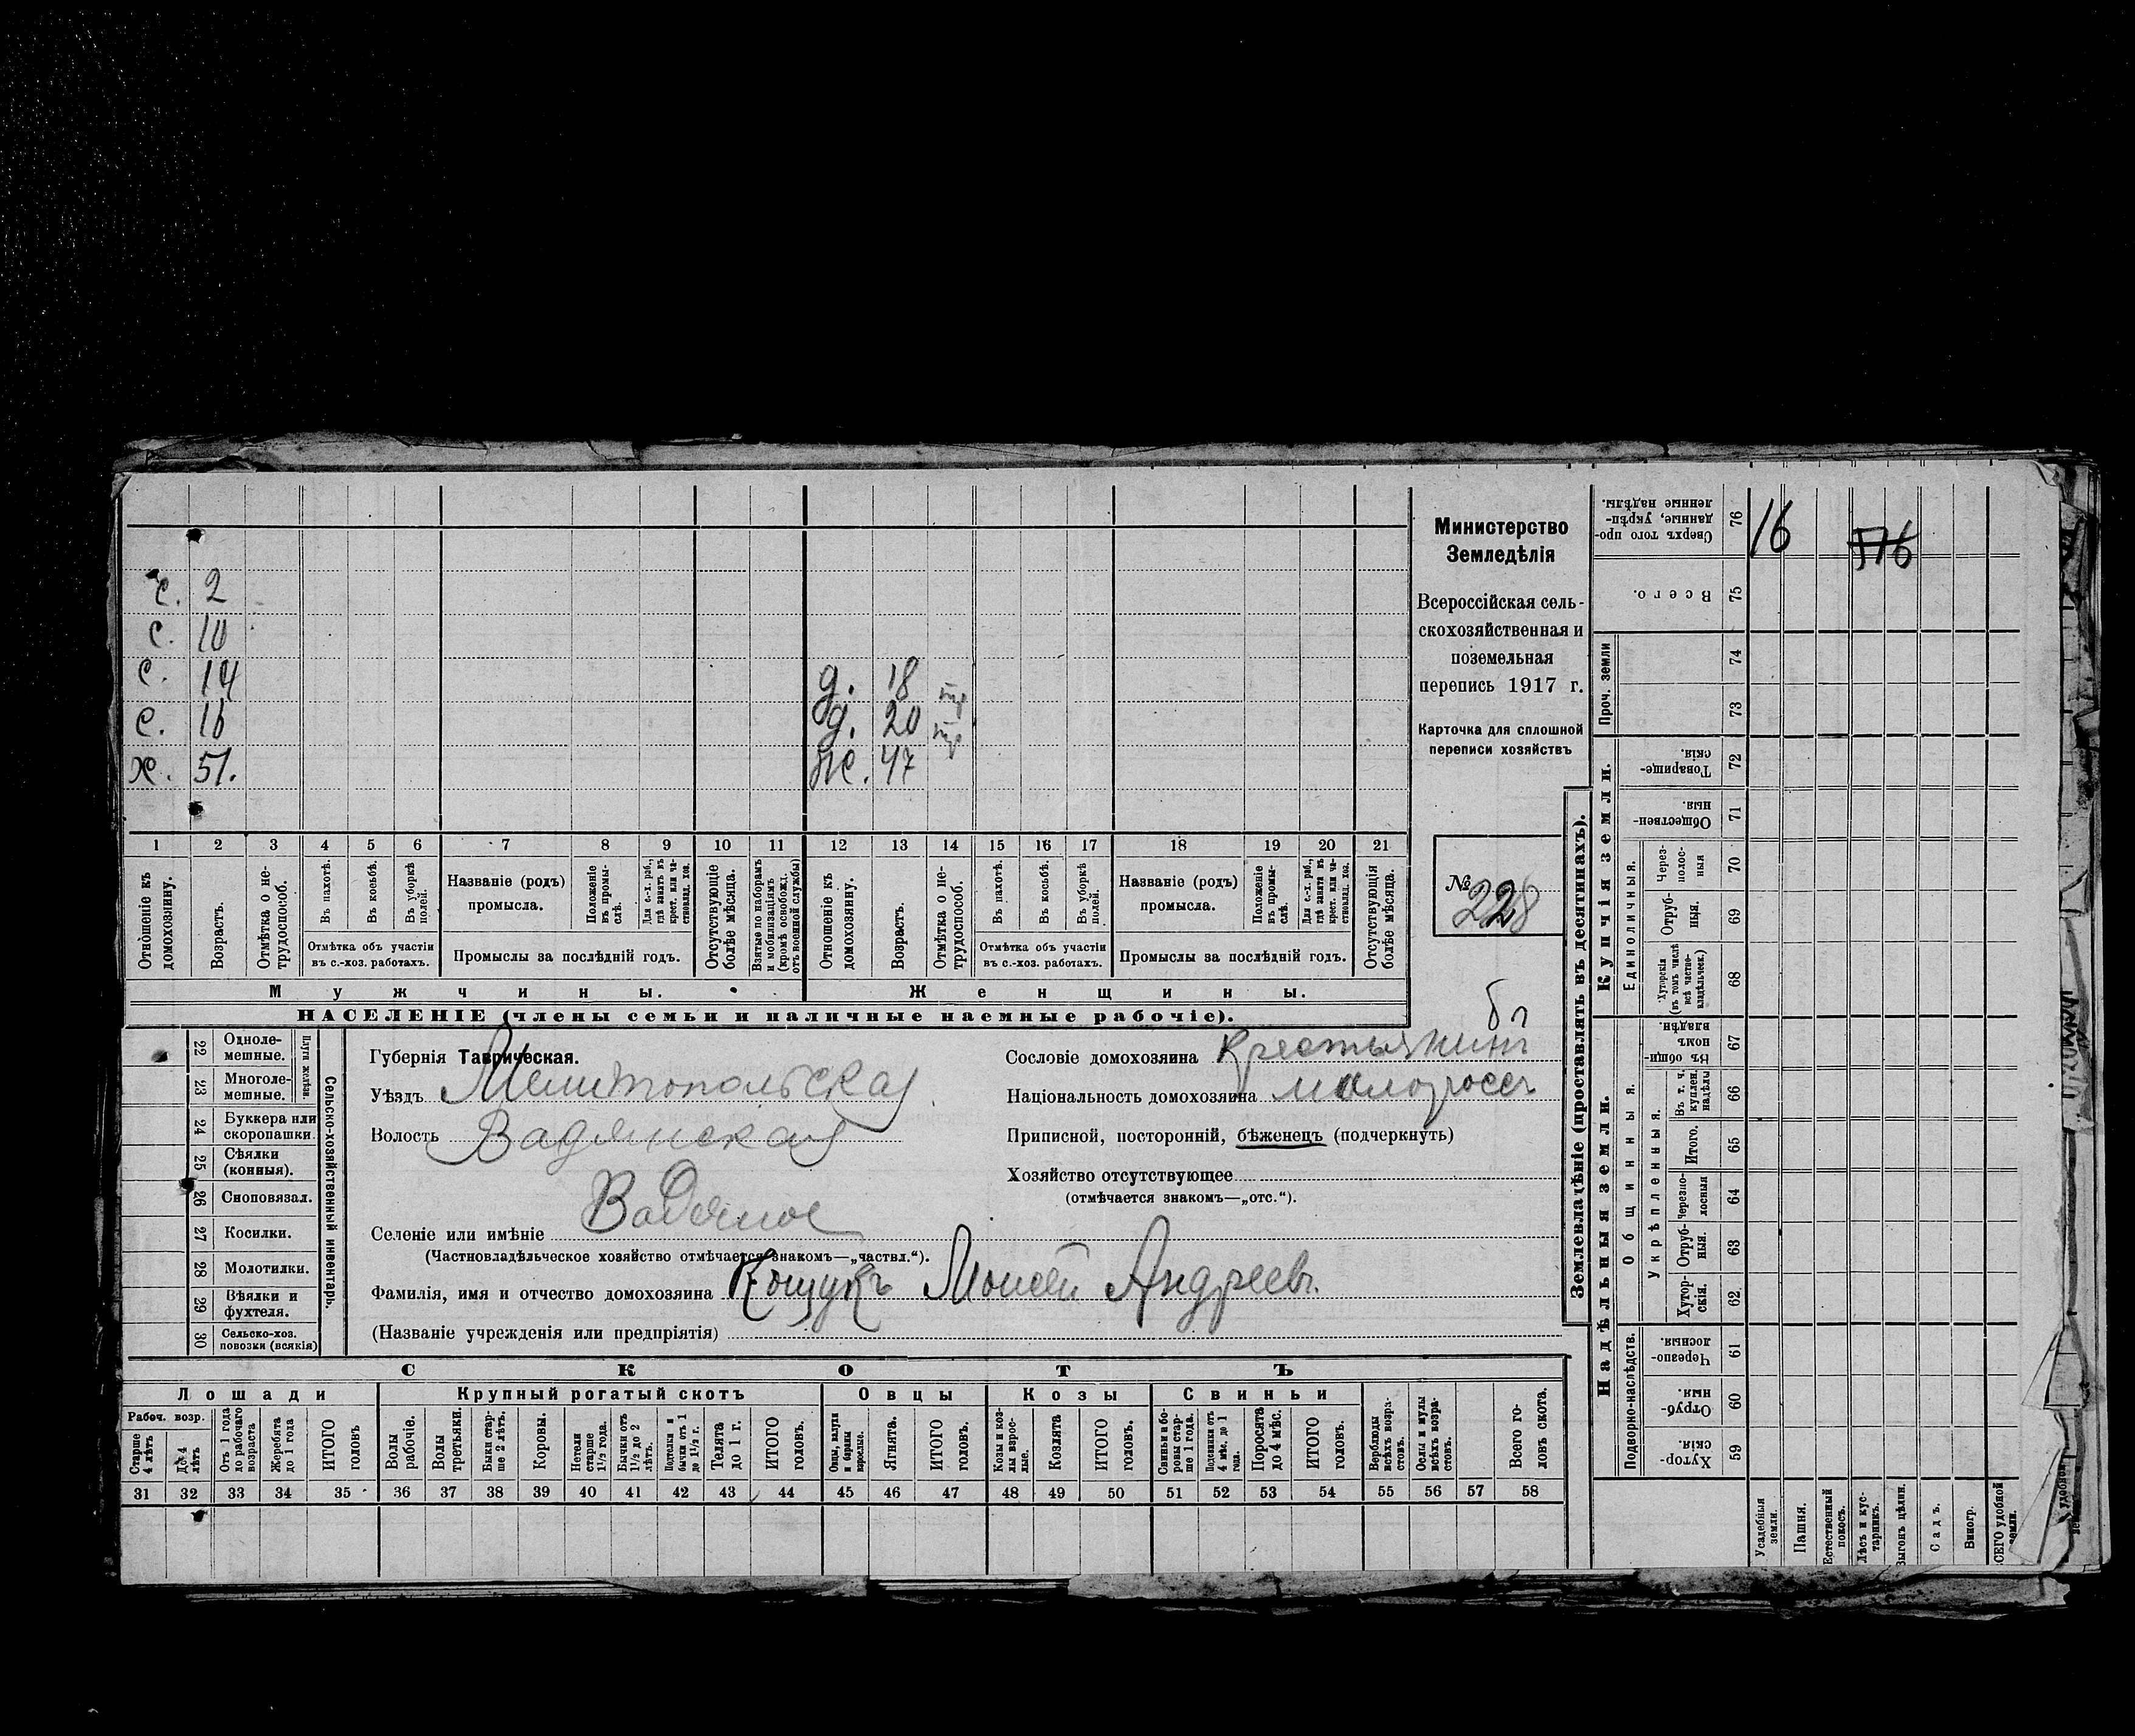 с. 2
с. 10
с. 14 д. 18
с. 16 д. 20
х. 51. ж. 47
1 2 3 4 5 6 7 8 9 10 11 12 13 14 15 16 17 18 19 20 21
Отношеніе къ домохозяину.
Возрастъ.
Отмѣтка о не-трудоспособ.
Въ пахотѣ.
Въ косьбѣ.
Въ уборкѣ полей.
Отмѣтка объ участіи
въ с.-хоз. работахъ.
Названіе (родъ)
промысла.
Положеніе въ промы-слѣ.
Для с.-х. раб., гдѣ занятъ въ крест. или ча-стновлад. хоз.
Промыслы за послѣдній годъ.
Отсутствующіе болѣе мѣсяца.
Взятые по наборамъ и мобилизаціямъ (кромѣ освобожд. отъ военной службы)
Отношеніе къ домохозяину.
Возрастъ.
Отмѣтка о не-трудоспособ.
Въ пахотѣ.
Въ косьбѣ.
Въ уборкѣ полей.
Отмѣтка объ участіи
въ с.-хоз. работахъ.
Названіе (родъ)
промысла.
Положеніе въ промы-слѣ.
Для с.-х. раб., гдѣ занята въ крест. или ча-стновлад. хоз.
Промыслы за послѣдній годъ.
Отсутствующія болѣе мѣсяца.
Мужчины. Женщины.
НАСЕЛЕНІЕ (члены семьи и наличные наемные рабочіе).
Министерство
Земледѣлія
Всероссійская сель-
скохозяйственная и
поземельная
перепись 1917 г.
Карточка для сплошной
переписи хозяйствъ
№ 228
22 Одноле-мешные.
23 Многоле-мешные.
Плуги желѣзн.
24 Буккера или скоропашки.
25 Сѣялки (конныя).
26 Сноповязал.
27 Косилки.
28 Молотилки.
29 Вѣялки и фухтеля.
30 Сельско-хоз. повозки (всякія)
Сельско-хозяйственный инвентарь.
Губернія Таврическая.
Уѣздъ Мелитопольская
Волость Вадянская
Селеніе или имѣніе Водяное
(Частновладѣльческое хозяйство отмѣчается знакомъ—„частвл.“).
Фамилія, имя и отчество домохозяина Кощукъ Моисей Андреевъ.
(Названіе учрежденія или предпріятія)
бл
Сословіе домохозяина Крестьянинъ
Національность домохозяина малороссъ
Приписной, посторонній, бѣженецъ (подчеркнуть)
Хозяйство отсутствующее
(отмѣчается знакомъ—„отс.“).
СКОТЪ
Лошади Крупный рогатый скотъ Овцы Козы Свиньи
Рабоч. возр.
Старше 4 лѣтъ
До 4 лѣтъ
Отъ 1 года до рабочаго возраста
Жеребята до 1 года
ИТОГО головъ
Волы рабочіе.
Волы третьяки.
Быки стар-ше 2 лѣтъ.
Коровы.
Нетели старше 1½ года.
Бычки отъ 1½ до 2 лѣтъ.
Подтелки и бычки отъ 1 до 1½ г.
Телята до 1 г.
ИТОГО головъ.
Овцы, валухи и бараны взрослые.
Ягнята.
ИТОГО головъ.
Козы и коз-лы взрос-лые.
Козлята
ИТОГО головъ.
Свиньи и бо-ровы стар-ше 1 года.
Подсвинки отъ 4 мѣс. до 1 года.
Поросята до 4 мѣс.
ИТОГО головъ.
Верблюды всѣхъ возра-стовъ.
Ослы и мулы всѣхъ возра-стовъ.
Всего го-ловъ скота.
31 32 33 34 35 36 37 38 39 40 41 42 43 44 45 46 47 48 49 50 51 52 53 54 55 56 57 58
Землевладѣніе (проставлять въ десятинахъ).
Купчія земли.
Надѣльныя земли.
Сверхъ того про-данные, укрѣп-ленные надѣлы. 76 16
Всего. 75
Проч. земли 74 73
Товарище-скія. 72
Обществен-ныя 71
Единоличныя.
Через-полос-ныя 70
Отруб-ныя. 69
Хуторскія (въ томъ числѣ всѣ частно-владѣльческ.) 68
Общинныя.
Въ общин-номъ владѣн. 67
Укрѣпленныя.
Въ т. ч. куплен. надѣлы 66
Итого. 65
Черезпо-лосныя 64
Отруб-ныя. 63
Хутор-скія. 62
Подворно-наслѣдств.
Черезпо-лосныя 61
Отруб-ныя 60
Хутор-скія 59
Усадебныя земли.
Пашня.
Естественный покосъ.
Лѣсъ и кус-тарникъ.
Выгонъ цѣлин.
Садъ.
Виногр.
ВСЕГО удобной земли.